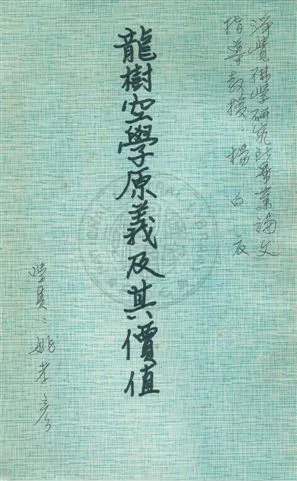 淨覺佛學研究所畢業論文
指導教授：楊白衣
龍樹空學原義及其價值
學員：姚孝彥